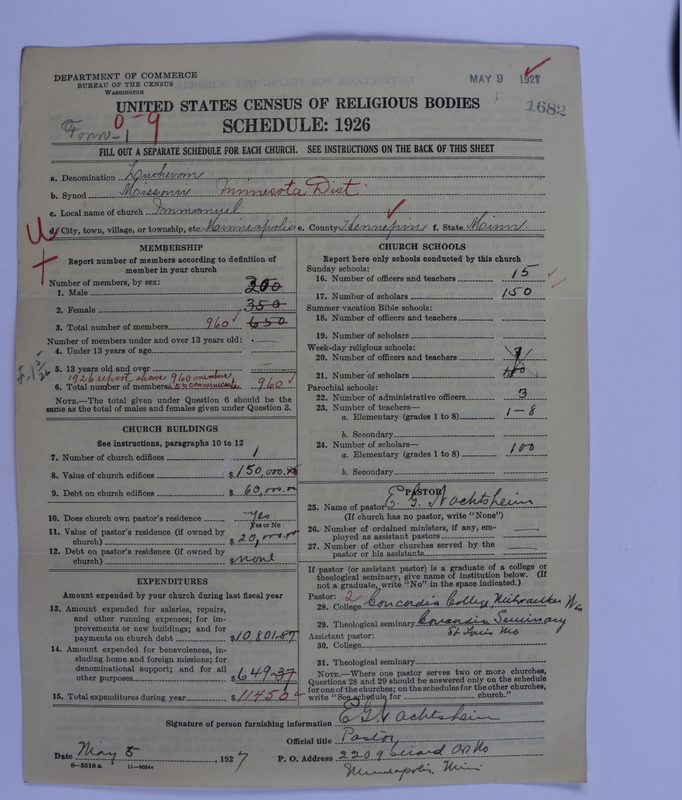 DEPARTMENT OF COMMERCE
BUREAU OF THE CENSUS
WASHINGTON
MAY 9 1927
1682
Form-1
0-9
UNITED STATES CENSUS OF RELIGIOUS BODIES
SCHEDULE: 1926
FILL OUT A SEPARATE SCHEDULE FOR EACH CHURCH. SEE INSTRUCTIONS ON THE BACK OF THIS SHEET
a. Denomination Lutheran
b. Synod Missouri Minnesota Dist.
c. Local name of church Immanuel
d. City, town, village, or township, etc. Minneapolis e. County Hennepin f. State Minn.
MEMBERSHIP
Report number of members according to definition of
member in your church
Number of members, by sex:
1. Male 300
2. Female 350
3. Total number of members 960 650
Number of members under and over 13 years old:
4. Under 13 years of age
5. 13 years old and over
1926 report shows 960 members
6. Total number of members 960
NOTE.—The total given under Question 6 should be the
same as the total of males and females given under Question 3.
CHURCH BUILDINGS
See instructions, paragraphs 10 to 12
7. Number of church edifices 1
8. Value of church edifices $150,000.00
9. Debt on church edifices $60,000.00
10. Does church own pastor's residence Yes
Yes or No
11. Value of pastor's residence (if owned by
church) $20,000.00
12. Debt on pastor's residence (if owned by
church) $none
EXPENDITURES
Amount expended by your church during last fiscal year
13. Amount expended for salaries, repairs,
and other running expenses; for im-
provements or new buildings; and for
payments on church debt $10,801.87
14. Amount expended for benevolences, in-
cluding home and foreign missions; for
denominational support; and for all
other purposes $649.37
15. Total expenditures during year $11450
CHURCH SCHOOLS
Report here only schools conducted by this church
Sunday schools:
16. Number of officers and teachers 15
17. Number of scholars 150
Summer vacation Bible schools:
18. Number of officers and teachers
19. Number of scholars
Week-day religious schools:
20. Number of officers and teachers
21. Number of scholars 100
Parochial schools:
22. Number of administrative officers 3
23. Number of teachers—
a. Elementary (grades 1 to 8) 1-8
b. Secondary
24. Number of scholars—
a. Elementary (grades 1 to 8) 100
b. Secondary
PASTOR
25. Name of pastor E. G. Nachtsheim
(If church has no pastor, write "None")
26. Number of ordained ministers, if any, em-
ployed as assistant pastors
27. Number of other churches served by the
pastor or his assistants
If pastor (or assistant pastor) is a graduate of a college or
theological seminary, give name of institution below. (If
not a graduate, write "No" in the space indicated.)
Pastor: 2
28. College Concordia College Milwaukee Wis
29. Theological seminary Concordia Seminary
St Louis Mo
Assistant pastor:
30. College
31. Theological seminary
NOTE.—Where one pastor serves two or more churches,
Questions 28 and 29 should be answered only on the schedule
for one of the churches; on the schedules for the other churches,
write "See schedule for church."
Signature of person furnishing information E G Nachtsheim
Official title Pastor
Date May 5, 1927 P. O. Address 2209 Girard Av No
Minneapolis, Minn
8-5518a 11-9054